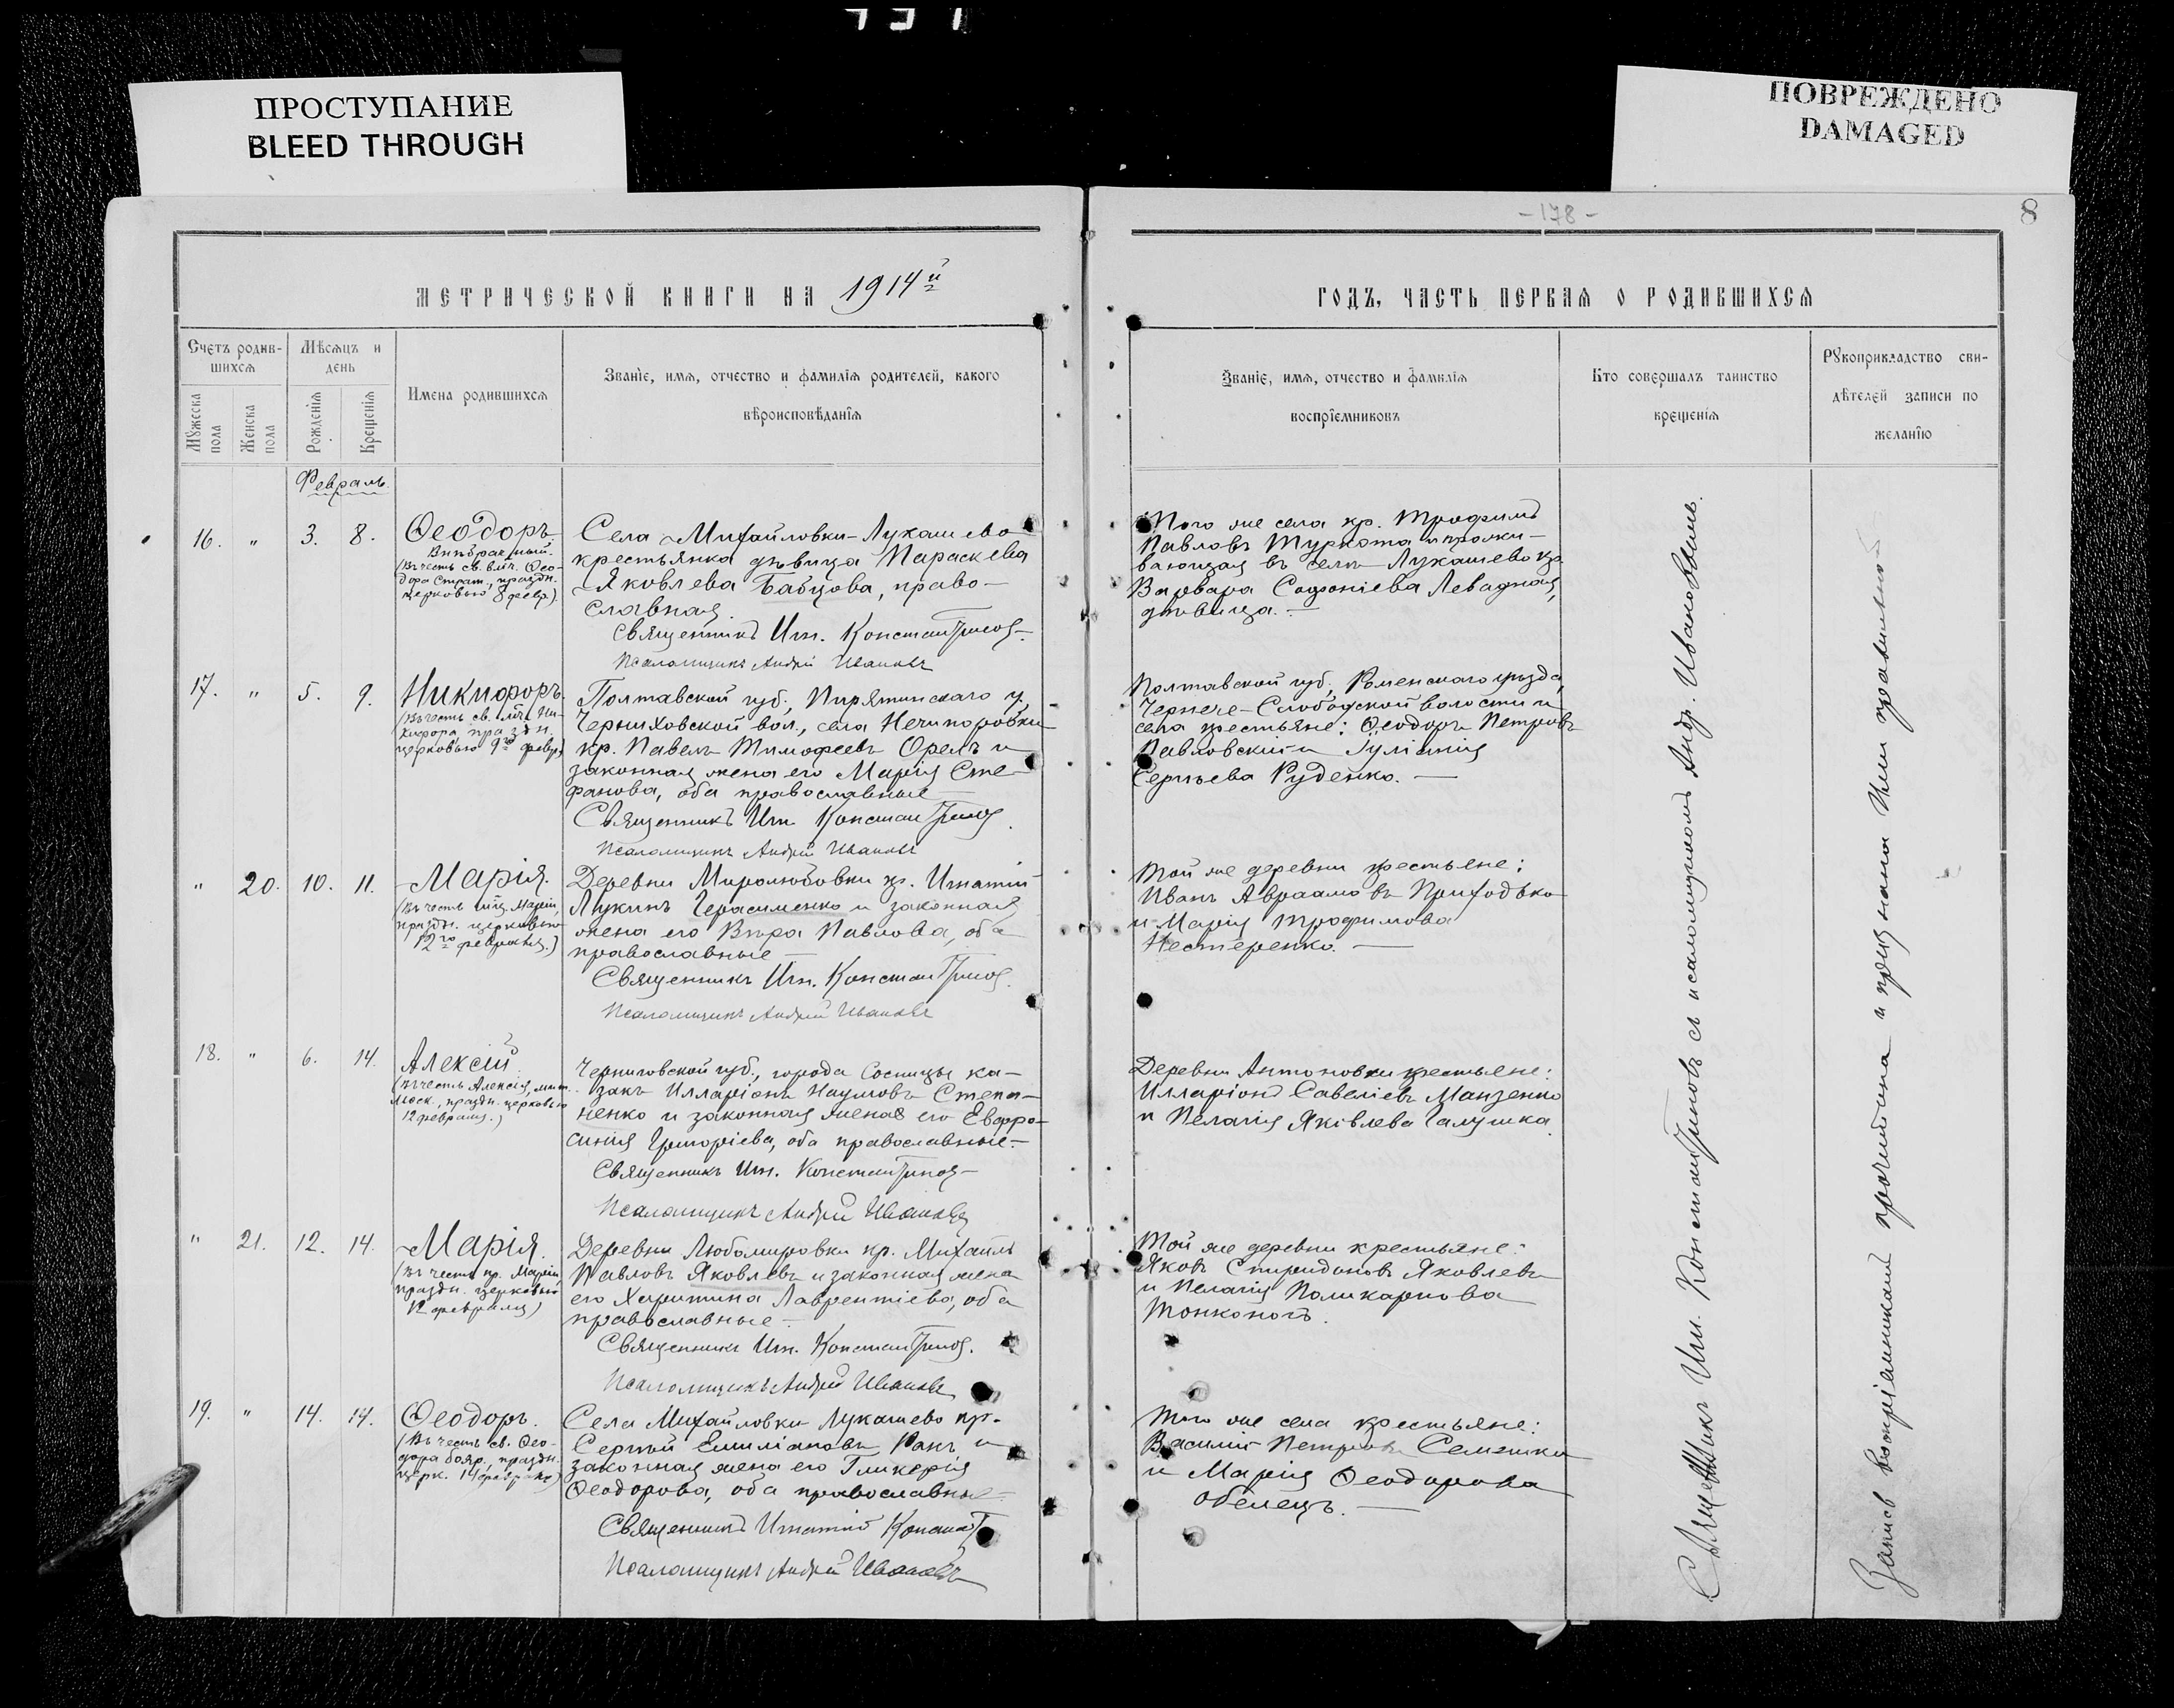 ПРОСТУПАНИЕ
BLEED THROUGH
ПОВРЕЖДЕНО
DAMAGED
- 178 -
8
МЕТРИЧЕСКОЙ КНИГИ НА 1914й
ГОДЪ, ЧАСТЬ ПЕРВАЯ О РОДИВШИХСЯ
Счетъ родив-
шихся
Мѣсяцъ и
день
Мужеска
пола
Женска
пола
Рожденія
Крещенія
Имена родившихся
Званіе, имя, отчество и фамилія родителей, какого
вѣроисповѣданія
Званіе, имя, отчество и фамилія
воспріемниковъ
Кто совершалъ таинство
крещенія
Рукоприкладство сви-
дѣтелей записи по
желанію
Февраль.
16. " 3. 8.
Ѳеодоръ.
Внѣбрачный.
(Въ честь св. влч. Ѳео-
дора Страт., праздн.
церковью 8 февр.)
Села Михайловки-Лукашево
крестьянка дѣвица Параскева
Яковлева Бабцова, право-
славная.
Священникъ Игн. Константиновъ
Псаломщикъ Андрей Ивановъ
Того же села кр. Трофимъ
Павловъ Туркота и прожи-
вающая въ селѣ Лукашево кр.
Варвара Софоніева Левадная,
дѣвица. —
17. " 5. 9.
Никифоръ.
(Въ честь св. мч. Ни-
кифора, праздн.
церковью 9го февр.)
Полтавской губ., Пирятинскаго у.
Черняховской вол., села Нечипоровки
кр. Павелъ Тимофеевъ Орелъ и
законная жена его Марія Сте-
фанова, оба православные
Священникъ Игн. Константиновъ
Псаломщикъ Андрей Ивановъ
Полтавской губ., Роменскаго уѣзда,
Чернече-Слободской волости и
села крестьяне: Ѳеодоръ Петровъ
Павловскій и Іуліанія
Сергѣева Руденко. —
" 20. 10. 11.
Марія.
(Въ честь мц. Маріи,
праздн. церковью
12го февраля.)
Деревни Миролюбовки кр. Игнатій
Лукинъ Герасименко и законная
жена его Вѣра Павлова, оба
православные —
Священникъ Игн. Константиновъ
Псаломщикъ Андрей Ивановъ
Той же деревни крестьяне:
Иванъ Авраамовъ Приходько
и Марія Трофимова
Нестеренко. —
18. " 6. 14.
Алексій
(Въ честь Алексія, мит.
Моск., праздн. церковью
12 февраля.)
Черниговской губ., города Сосницы ка-
закъ Илларіонъ Наумовъ Степа-
ненко и законная жена его Евфро-
синія Григоріева, оба православные. —
Священникъ Игн. Константиновъ
Псаломщикъ Андрей Ивановъ
Деревни Антоновки крестьяне:
Илларіонъ Савеліевъ Манзенко
и Пелагія Яковлева Галушка.
" 21. 12. 14.
Марія.
(Въ честь пр. Маріи,
праздн. церковью
12 февраля)
Деревни Любомировки кр. Михаилъ
Павловъ Яковлевъ и законная жена
его Харитина Лаврентіева, оба
православные —
Священникъ Игн. Константиновъ
Псаломщикъ Андрей Ивановъ
Той же деревни крестьяне:
Яковъ Спиридоновъ Яковлевъ
и Пелагія Поликарпова
Тонконогъ.
19. " 14. 14.
Ѳеодоръ.
(Въ честь св. Ѳео-
дора бояр., праздн.
церк. 14 февраля)
Села Михайловки Лукашево кр.
Сергѣй Емиліановъ Ракъ и
законная жена его Гликерія
Ѳеодорова, оба православные
Священникъ Игнатій Констант
Псаломщикъ Андрей Ивановъ
Того же села крестьяне:
Василій Петровъ Семешка
и Марія Ѳеодорова
Обелецъ. —
Священникъ Игн. Константиновъ съ псаломщикомъ Андр. Ивановымъ.
Запись воспріемниками прочитана и признана ими правильной